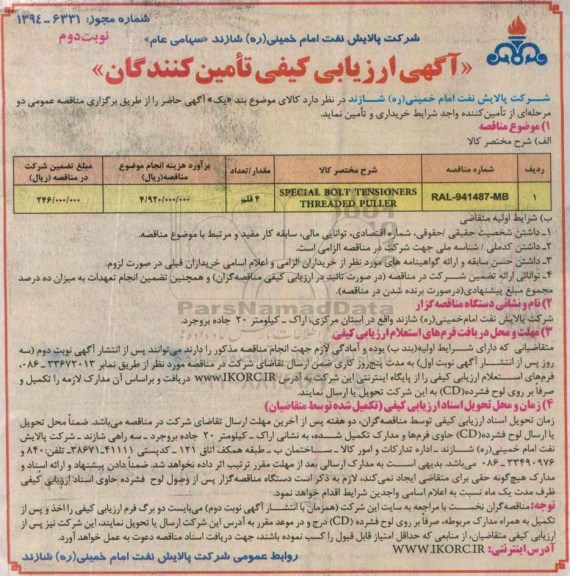 شماره مجوز: ۶۳۳۱-۱۳۹۴
نوبت دوم
شرکت پالایش نفت امام خمینی(ره) شازند «سهامی عام»
«آگهی ارزیابی کیفی تأمین کنندگان»
شرکت پالایش نفت امام خمینی(ره) شازند در نظر دارد کالای موضوع بند «یک» آگهی حاضر را از طریق برگزاری مناقصه عمومی دو
مرحله‌ای از تأمین‌کننده واجد شرایط خریداری و تأمین نماید.
۱) موضوع مناقصه
الف) شرح مختصر کالا
ردیف شماره مناقصه شرح مختصر کالا مقدار/تعداد برآورد هزینه انجام موضوع مناقصه(ریال) مبلغ تضمین شرکت در مناقصه (ریال)
۱ RAL-941487-MB SPECIAL BOLT TENSIONERS THREADED PULLER ۴ قلم ۴/۹۲۰/۰۰۰/۰۰۰ ۲۴۶/۰۰۰/۰۰۰
ب) شرایط اولیه متقاضی
۱ـ داشتن شخصیت حقیقی /حقوقی، شماره اقتصادی، توانایی مالی، سابقه کار مفید و مرتبط با موضوع مناقصه.
۲ـ داشتن کدملی / شناسه ملی جهت شرکت در مناقصه الزامی است.
۳ـ داشتن حسن سابقه و ارائه گواهینامه های مورد نظر از خریداران الزامی و اعلام اسامی خریداران قبلی در صورت لزوم.
۴ـ توانائی ارائه تضمین شرکت در مناقصه (در صورت تائید در ارزیابی کیفی مناقصه‌گران) و همچنین تضمین انجام تعهدات به میزان ده درصد
مجموع مبلغ پیشنهادی(درصورت برنده شدن در مناقصه).
۲) نام و نشانی دستگاه مناقصه‌گزار
شرکت پالایش نفت امام‌خمینی(ره) شازند واقع در استان مرکزی، اراک ـ کیلومتر ۲۰ جاده بروجرد.
۳) مهلت و محل دریافت فرم‌های استعلام ارزیابی کیفی
متقاضیانی که دارای شرایط اولیه(بند ب) بوده و آمادگی لازم جهت انجام مناقصه مذکور را دارند می‌توانند پس از انتشار آگهی نوبت دوم (سه
روز پس از انتشار آگهی نوبت اول) به مدت پنج‌روز کاری ضمن ارسال تقاضای شرکت در مناقصه مورد نظر از طریق نمابر ۳۳۶۷۲۰۱۳-۰۸۶،
فرم‌های استعلام ارزیابی کیفی را از پایگاه اینترنتی این شرکت به آدرس WWW.IKORC.IR دریافت و براساس آن مدارک لازمه را تکمیل و
صرفاً بر روی لوح فشرده(CD) به این شرکت تحویل یا ارسال نمایند.
۴) زمان و محل تحویل اسناد ارزیابی کیفی (تکمیل شده توسط متقاضیان)
زمان تحویل اسناد ارزیابی کیفی توسط مناقصه‌گران، دو هفته پس از آخرین مهلت ارسال تقاضای شرکت در مناقصه می‌باشد. ضمناً محل تحویل
یا ارسال لوح فشرده(CD) حاوی فرم‌ها و مدارک تکمیل شده، به نشانی اراک ـ کیلومتر ۲۰ جاده بروجرد ـ سه راهی شازند ـ شرکت پالایش
نفت امام خمینی(ره) شازند ـ اداره تدارکات و امور کالا ـ ساختمان ب ـ طبقه همکف اتاق ۱۲۱ ـ کدپستی ۴۱۱۱۱-۳۸۶۷۱ـ تلفن: ۸۴۰ و
۳۳۴۹۰۹۷۶ -۰۸۶ می‌باشد. بدیهی است به مدارک ارسالی بعد از مهلت مقرر ترتیب اثر داده نخواهد شد. ضمناً دادن پیشنهاد و ارائه اسناد و
مدارک هیچ‌گونه حقی برای متقاضی ایجاد نمی‌کند، لازم به ذکر است دستگاه مناقصه‌گزار پس از وصول لوح فشرده حاوی اسناد ارزیابی کیفی
ظرف مدت یک ماه نسبت به اعلام اسامی واجدین شرایط اقدام خواهد نمود.
توجه: مناقصه‌گران نخست با مراجعه به سایت این شرکت (همزمان با انتشار آگهی نوبت دوم) می‌بایست دو برگ فرم ارزیابی کیفی را اخذ و پس از
تکمیل به همراه مدارک مربوطه، صرفاً بر روی لوح فشرده (CD) درج و در موعد مقرر به آدرس این شرکت ارسال یا تحویل نمایند، این شرکت نیز پس از
ارزیابی کیفی متقاضیان، از منابعی که حداقل امتیاز قابل قبول را کسب نموده باشند، جهت دریافت اسناد مناقصه دعوت به عمل خواهد آورد.
آدرس اینترنتی: WWW.IKORC.IR
روابط عمومی شرکت پالایش نفت امام خمینی(ره) شازند
ParsNamadData